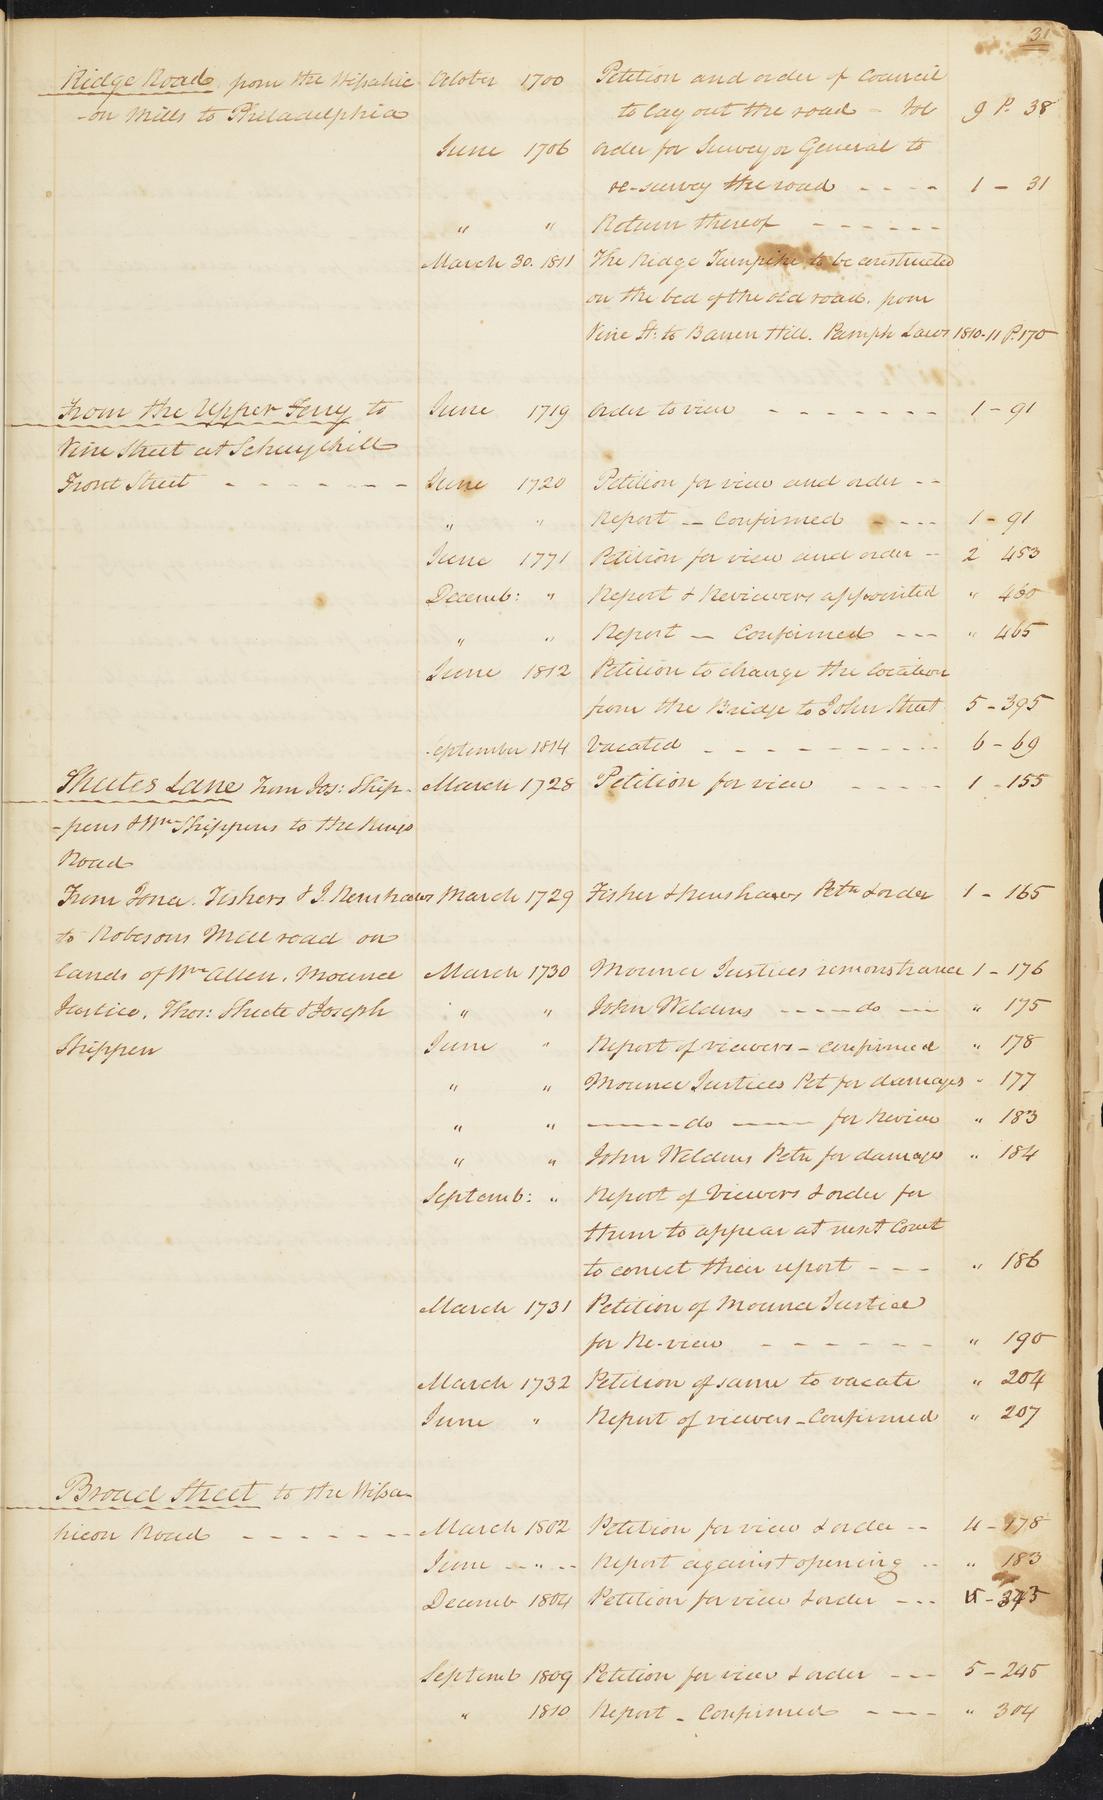 31
Ridge Road from the Wissahic October 1700 Petition and order of Council
-on Mills to Philadelphia to lay out the road - Vol 9 P. 38
June 1706 order for Surveyor General to
re-survey the road - - - - 1 - 31
" " Return thereof - - - - - -
March 30. 1811 The Ridge Turnpike to be constructed
on the bed of the old road. from
Vine St: to Barren Hill. Pamph Laws 1810-11 P. 170
From the Upper Ferry to June 1719 order to view - - - - - - - 1 - 91
Vine Street at Schuylkill
Front Street - - - - - - - June 1720 Petition for view and order - -
" " Report - Confirmed - - - - 1 - 91
June 1771 Petition for view and order - - 2 453
Decemb: " Report & Reviewers appointed " 460
" " Report - Confirmed - - - " 465
June 1812 Petition to change the location
from the Bridge to John Street 5 - 395
September 1814 Vacated - - - - - - - - - - 6 - 69
Shutes Lane From Jos: Ship- March 1728 Petition for view - - - - - 1 - 155
-pens & Wm Shippens to the Kings
Road
From Jona. Fishers & J. Renshaws March 1729 Fisher & Renshaws Petn & order 1 - 165
to Robesons Mill road on
lands of Wm Allen. Mounce March 1730 Mounce Justices remonstrance 1 - 176
Justice. Thos: Shute & Joseph " " John Weldens - - - - do - - " 175
Shippen June " Report of viewers - confirmed " 178
" " Mounce Justices Pet for damages " 177
" " - - - - do - - - - for Review " 183
" " John Weldens Petn for damages " 184
Septemb: " Report of Viewers & order for
them to appear at next Court
to correct their report - - - " 186
March 1731 Petition of Mounce Justice
for Re-view - - - - - - - " 190
March 1732 Petition of same to vacate " 204
June " Report of viewers - Confirmed " 207
Broad Street to the Wissa-
hicon Road - - - - - - - March 1802 Petition for view & order - - 4 - 178
June - " - - Report against opening - - " 183
Decemb 1804 Petition for view & order - - -
Septemb 1809 Petition for view & order - - - 5 - 245
" 1810 Report - Confirmed - - - - " 304